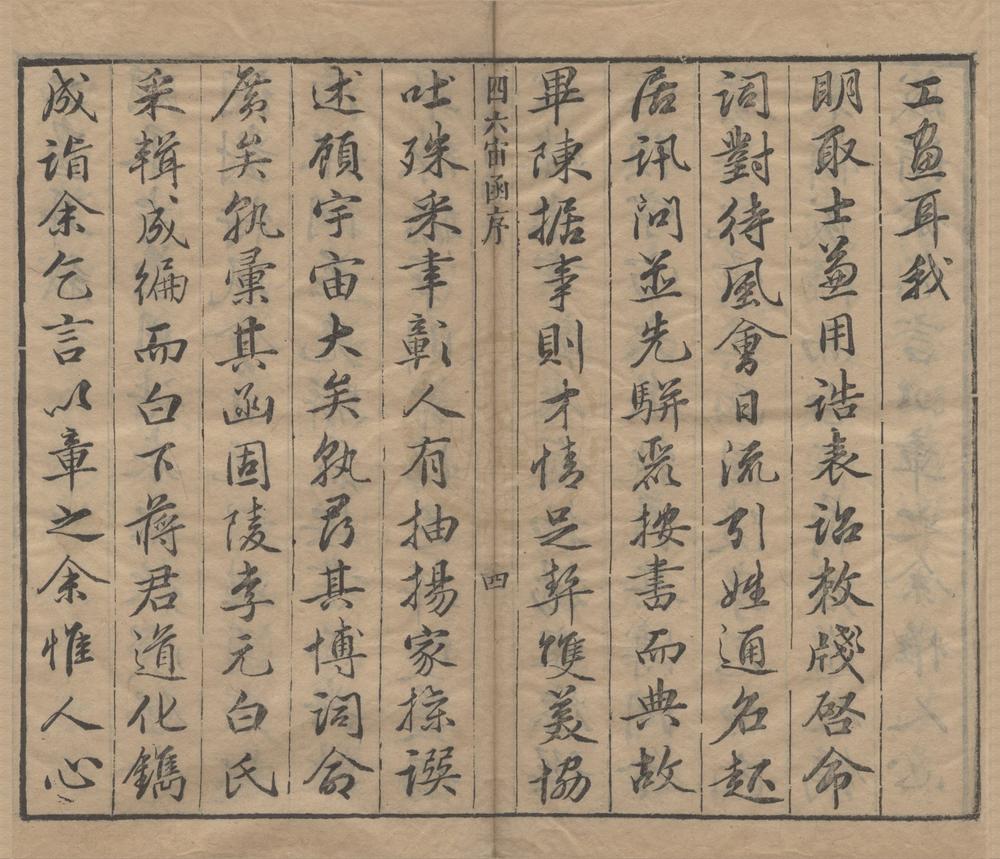 工畫耳我
明取士兼用誥表詔敕牋啓命
詞對待風會日流引姓通名起
居訊問並先駢麗按書而典故
畢陳据事則才情足挈雙美協
四六宙函序 四
吐殊采聿彰人有抽揚家操譔
述顧宇宙大矣孰尋其博詞命
廣矣孰彙其函固陵李元白氏
采輯成編而白下蔣君道化鐫
成詣余乞言以章之余惟人心